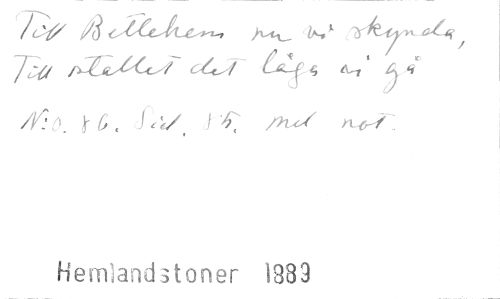 Till Betlehem nu vi skynda,
Till stallet det låga vi gå
N:o. 86. Sid. 85. med not.
Hemlandstoner 1889